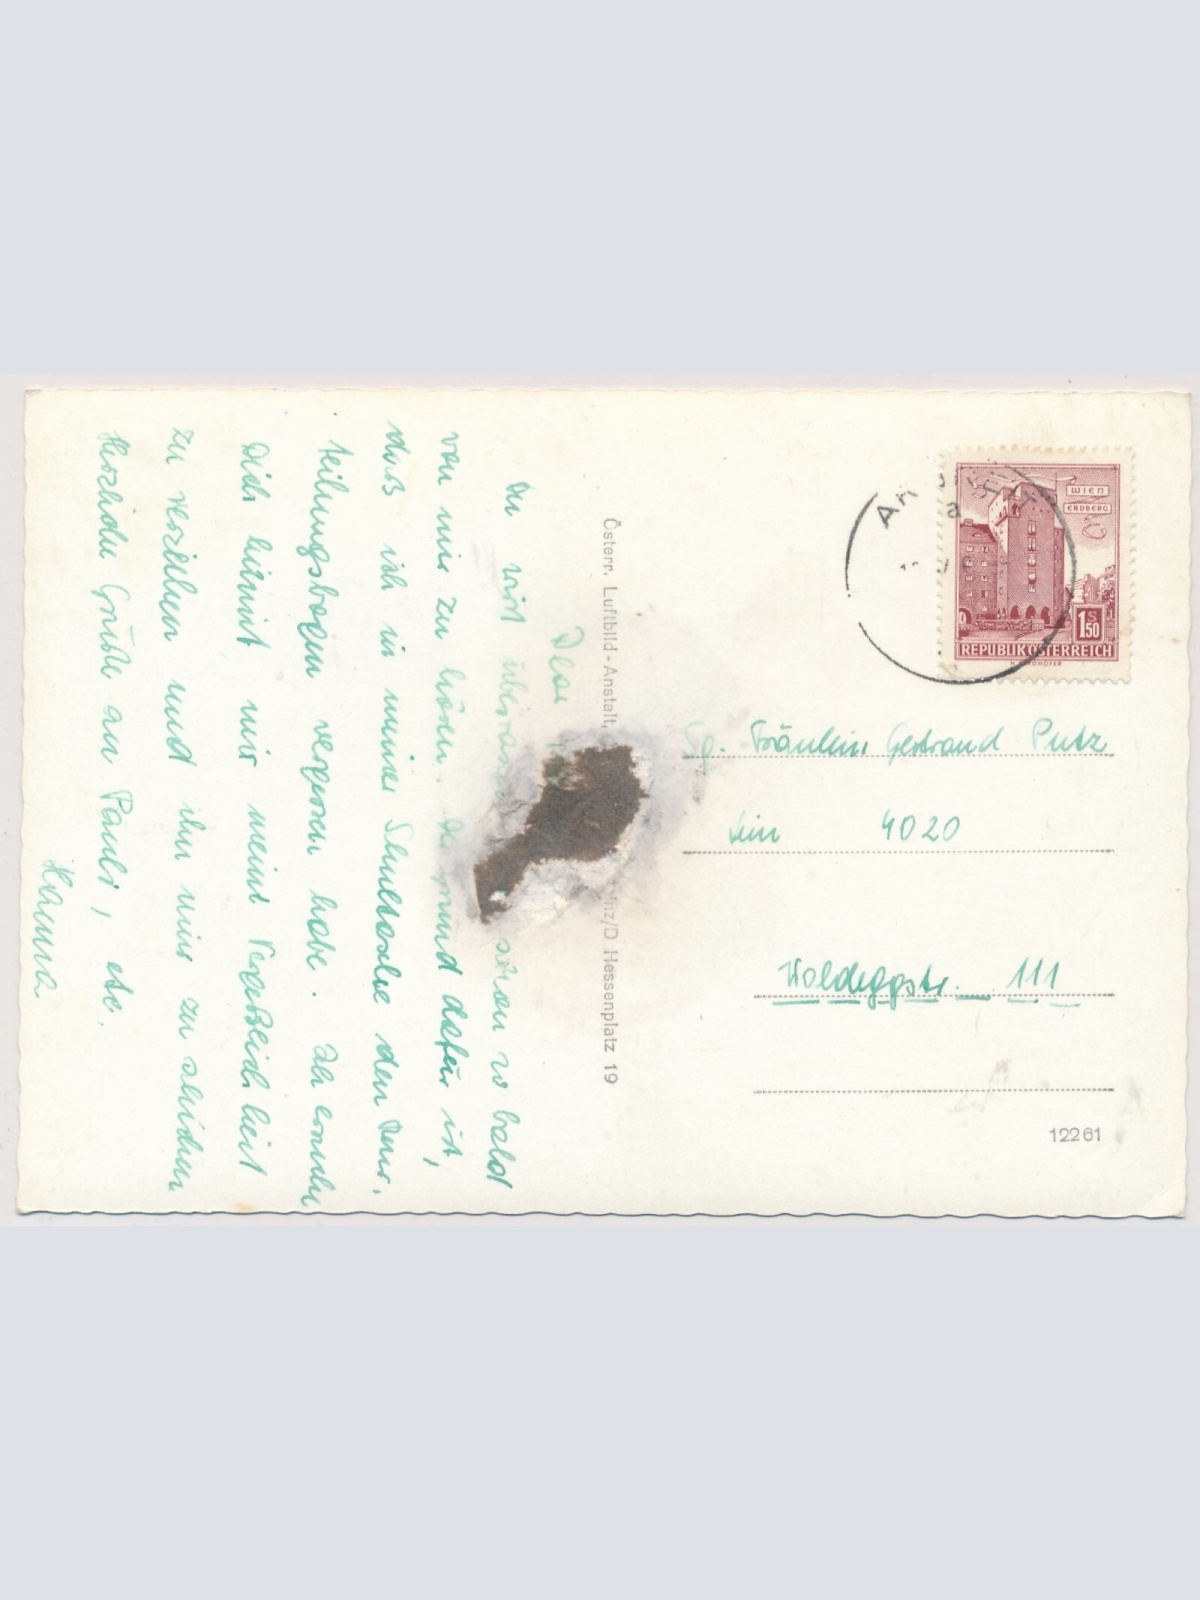 Dear
Du wirst überrascht schon so bald
von mir zu hören. der Grund dafür ist,
daß ich in meiner Schultasche den
teilungsbogen vergessen habe. Ich
Dich hiermit mir meine Vergeßlichkeit
zu verzeihen und ihn mir zu schicken
Herzliche Grüße an Pauli, etc.
Hanna
Österr. Luftbild-Anstalt, inz/D Hessenplatz 19
WIEN
ERDBERG
1 S 50
REPUBLIK ÖSTERREICH
Sp. Fräulein Gertraud Putz
4020
Waldeggstr. 111
12261